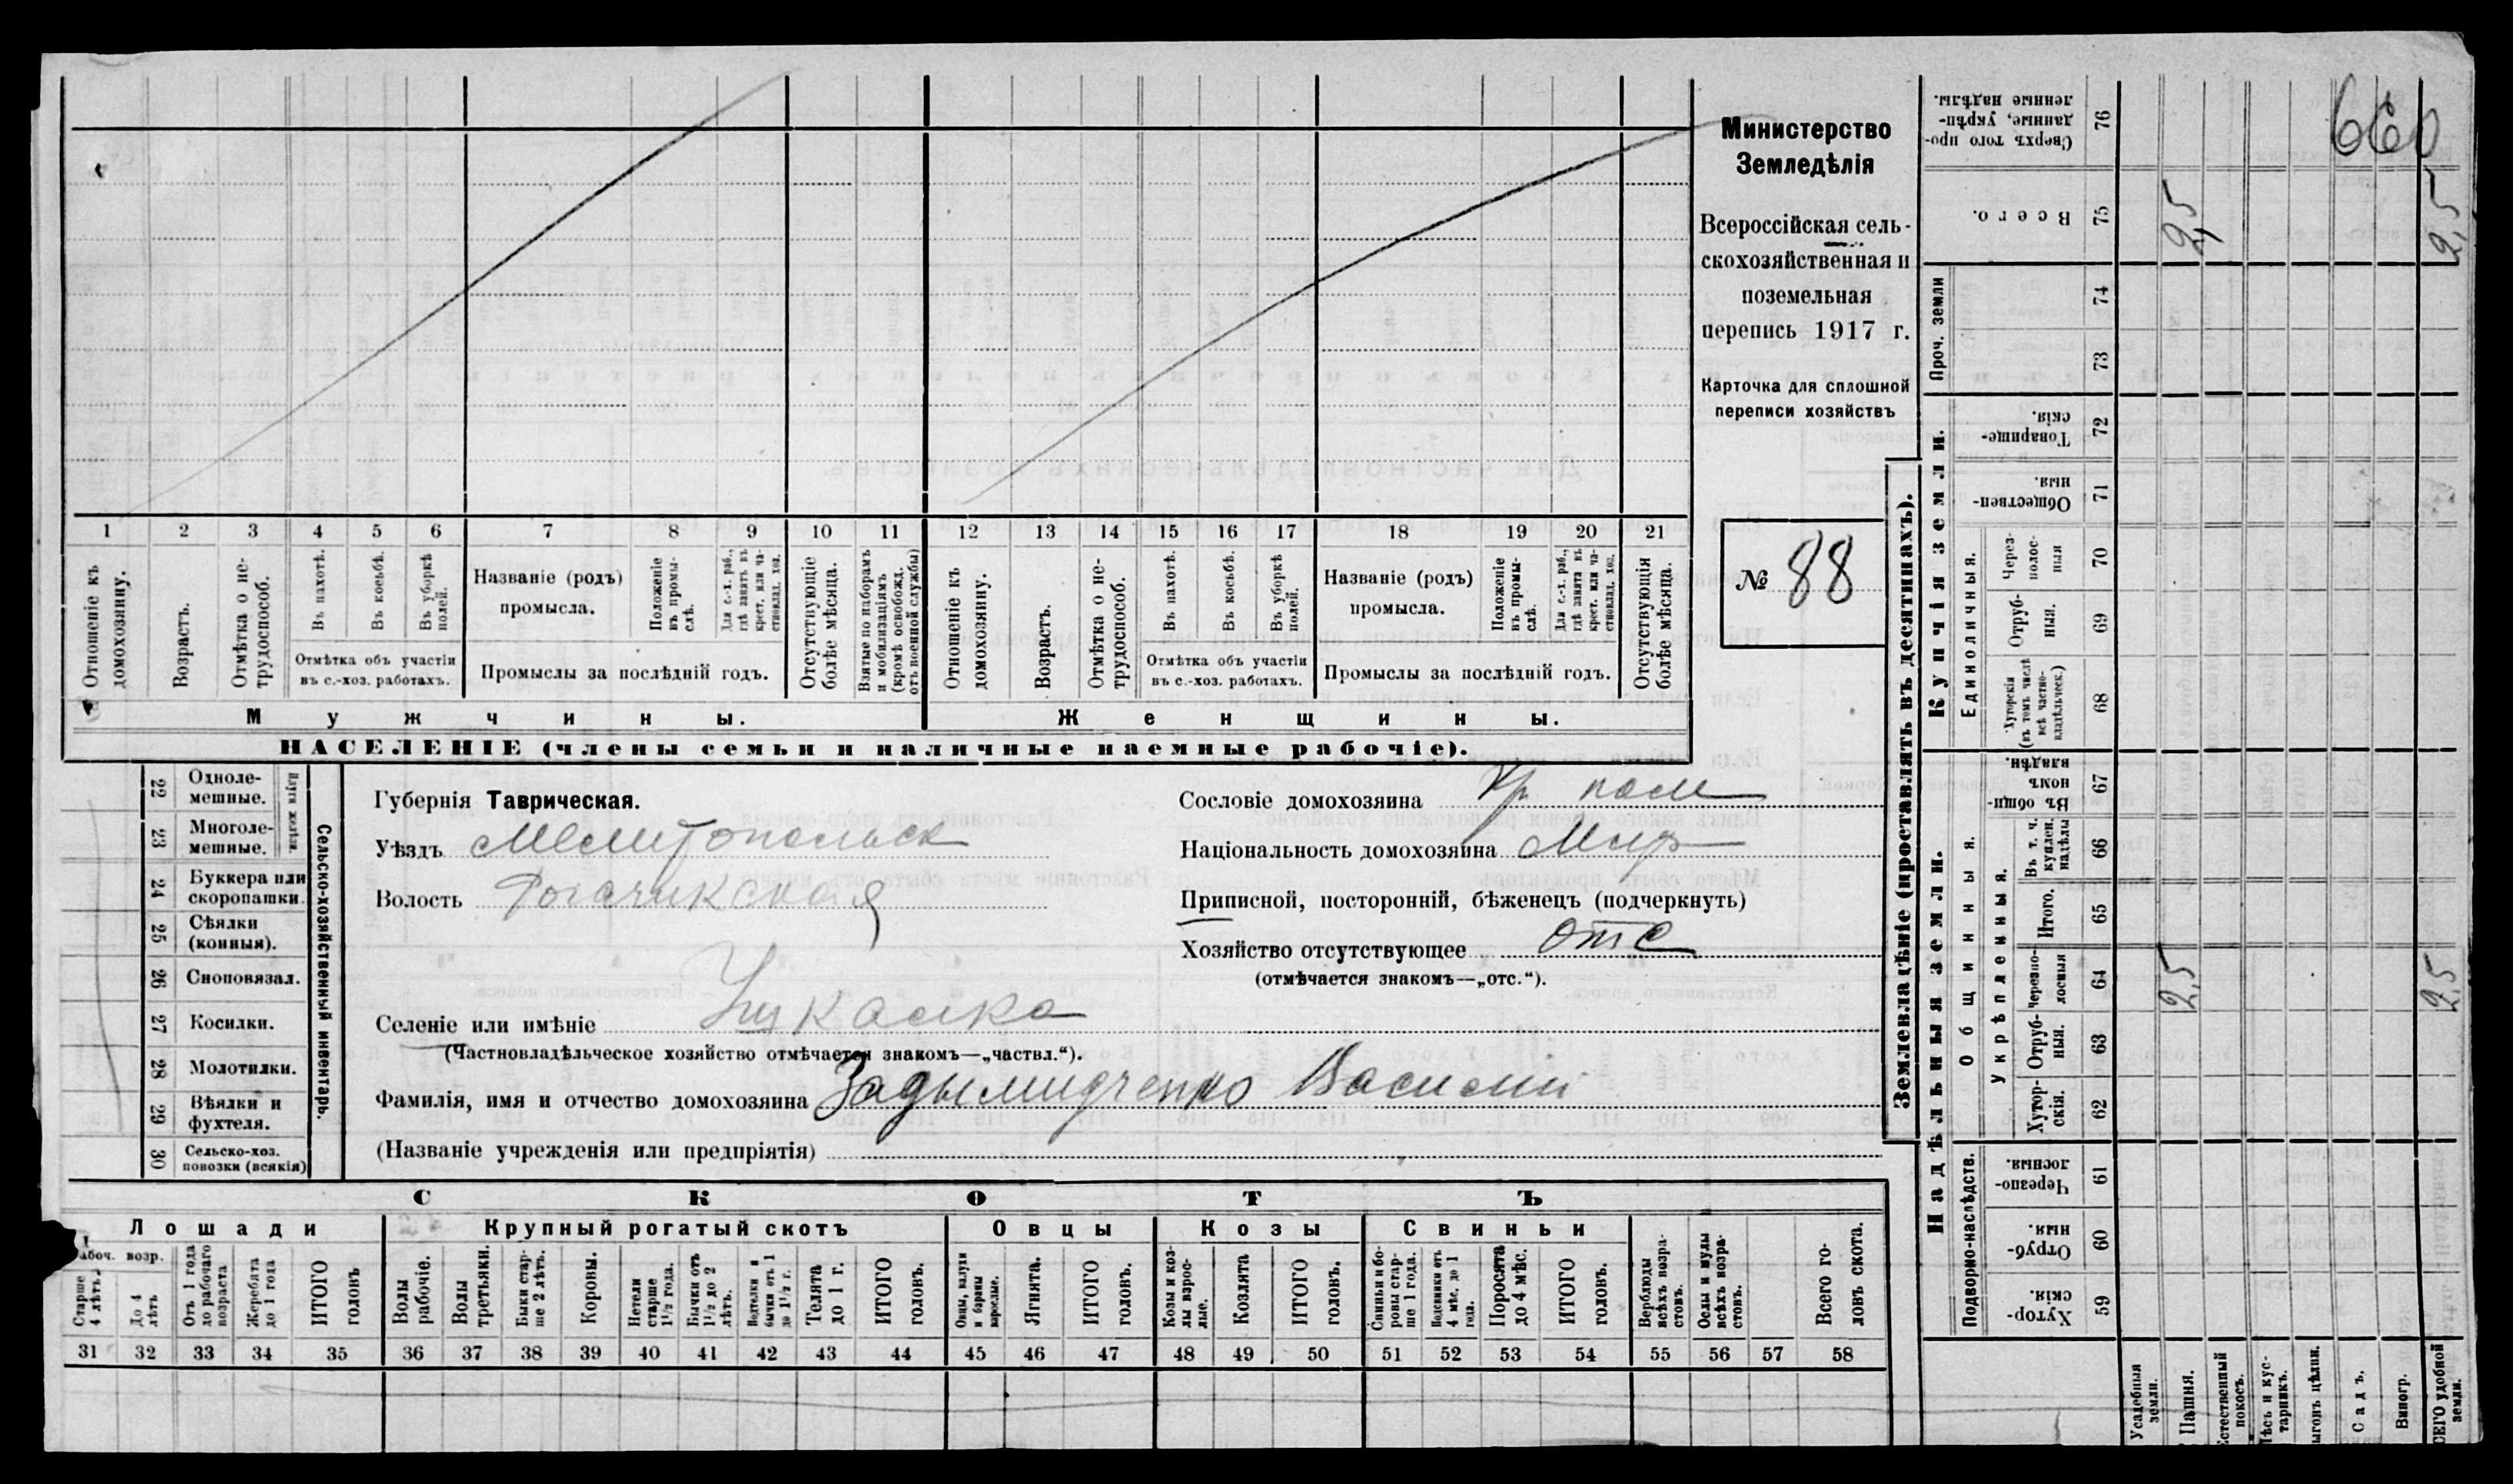 1 2 3 4 5 6 7 8 9 10 11 12 13 14 15 16 17 18 19 20 21
Отношеніе къ домохозяину.
Возрастъ.
Отмѣтка о не-
трудоспособ.
Въ пахотѣ.
Въ косьбѣ.
Въ уборкѣ
полей.
Отмѣтка объ участіи
въ с.-хоз. работахъ.
Названіе (родъ)
промысла.
Положеніе
въ промы-
слѣ.
Для с.-х. раб.,
гдѣ занятъ въ
крест. или ча-
стновлад. хоз.
Промыслы за послѣдній годъ.
Отсутствующіе
болѣе мѣсяца.
Взятые по наборамъ
и мобилизаціямъ
(кромѣ освобожд.
отъ военной службы)
Отношеніе къ
домохозяину.
Возрастъ.
Отмѣтка о не-
трудоспособ.
Въ пахотѣ.
Въ косьбѣ.
Въ уборкѣ
полей.
Отмѣтка объ участіи
въ с.-хоз. работахъ.
Названіе (родъ)
промысла.
Положеніе
въ промы-
слѣ.
Для с.-х. раб.,
гдѣ занята въ
крест. или ча-
стновлад. хоз.
Промыслы за послѣдній годъ.
Отсутствующія
болѣе мѣсяца.
Мужчины.
Женщины.
НАСЕЛЕНІЕ (члены семьи и наличные наемные рабочіе).
Министерство
Земледѣлія
Всероссійская сель-
скохозяйственная и
поземельная
перепись 1917 г.
Карточка для сплошной
переписи хозяйствъ
№ 88
22 Одноле-
мешные.
23 Многоле-
мешные.
24 Буккера или
скоропашки.
25 Сѣялки
(конныя).
26 Сноповязал.
27 Косилки.
28 Молотилки.
29 Вѣялки и
фухтеля.
30 Сельско-хоз.
повозки (всякія)
Сельско-хозяйственный инвентарь.
Губернія Таврическая.
Уѣздъ Мелитопольск
Волость Рогачикская
Селеніе или имѣніе
(Частновладѣльческое хозяйство отмѣчается знакомъ—„частвл.“).
Фамилія, имя и отчество домохозяина Задымидченко Василий
(Названіе учрежденія или предпріятія)
Сословіе домохозяина Кр
Національность домохозяина
Приписной, посторонній, бѣженецъ (подчеркнуть)
Хозяйство отсутствующее отс
(отмѣчается знакомъ—„отс.“).
СКОТЪ
Лошади
Крупный рогатый скотъ
Овцы
Козы
Свиньи
Рабоч. возр.
Старше
4 лѣтъ.
До 4
лѣтъ
Отъ 1 года
до рабочаго
возраста
Жеребята
до 1 года
ИТОГО
головъ
Волы
рабочіе.
Волы
третьяки.
Быки стар-
ше 2 лѣтъ.
Коровы.
Нетели
старше
1½ года.
Бычки отъ
1½ до 2
лѣтъ.
бычки отъ 1
до 1½ г.
Телята
до 1 г.
ИТОГО
головъ.
Овцы, валухи
и бараны
взрослые.
Ягнята.
ИТОГО
головъ.
Козы и коз-
лы взрос-
лые.
Козлята
ИТОГО
головъ.
Свиньи и бо-
ровы стар-
ше 1 года.
Подсвинки отъ
4 мѣс. до 1
года.
Поросята
до 4 мѣс.
ИТОГО
головъ.
Верблюды
всѣхъ возра-
стовъ.
Ослы и мулы
всѣхъ возра-
стовъ.
Всего го-
ловъ скота.
31 32 33 34 35 36 37 38 39 40 41 42 43 44 45 46 47 48 49 50 51 52 53 54 55 56 57 58
Землевладѣніе (проставлять въ десятинахъ).
Надѣльныя земли.
Купчія земли.
Проч. земли
Подворно-наслѣдств.
Общинныя.
Укрѣпленныя.
Единоличныя.
660
Сверхъ того про-
данные, укрѣп-
ленные надѣлы.
76
Всего.
75 2,5 2,5
74
73
Товарище-
скія.
72
Обществен-
ныя.
71
Через-
полос-
ныя
70
Отруб-
ныя.
69
Хуторскія
(въ томъ числѣ
всѣ частно-
владѣльческ.)
68
Въ общин-
номъ
владѣн.
67
Въ т. ч.
куплен.
надѣлы
66
Итого.
65
Черезпо-
лосныя
64 2,5 2,5
Отруб-
ныя.
63
Хутор-
скія.
62
Черезпо-
лосныя.
61
Отруб-
ныя.
60
Хутор-
скія.
59
Усадебныя
земли.
Пашня.
Естественный
покосъ.
Лѣсъ и кус-
тарникъ.
Выгонъ цѣлин.
Садъ.
Виногр.
ВСЕГО удобной
земли.